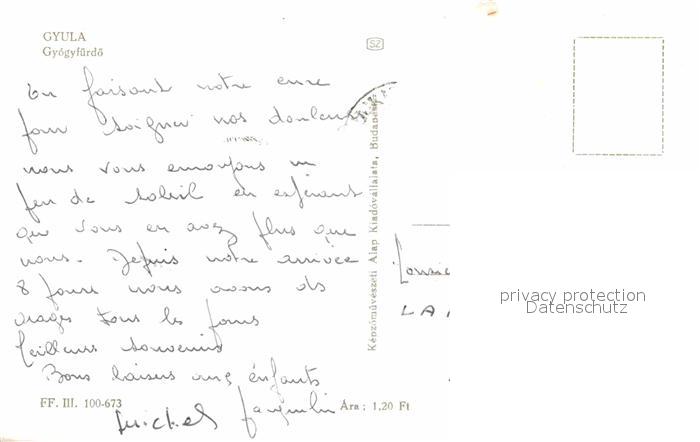 GYULA
Gyógyfürdő
SZ
En faisant notre cure
pour soigner nos douleurs
nous vous envoyons un
peu de soleil en espérant
que vous en avez plus que
nous. Depuis notre arrivée
8 jours nous avons ds
orages tous les jours
Meilleurs souvenirs
Bons baisers aux enfants
Michel Jacquelin
FF. III. 100-673
Ára: 1,20 Ft
Képzőművészeti Alap Kiadóvállalata, Budapest
LA
privacy protection
Datenschutz